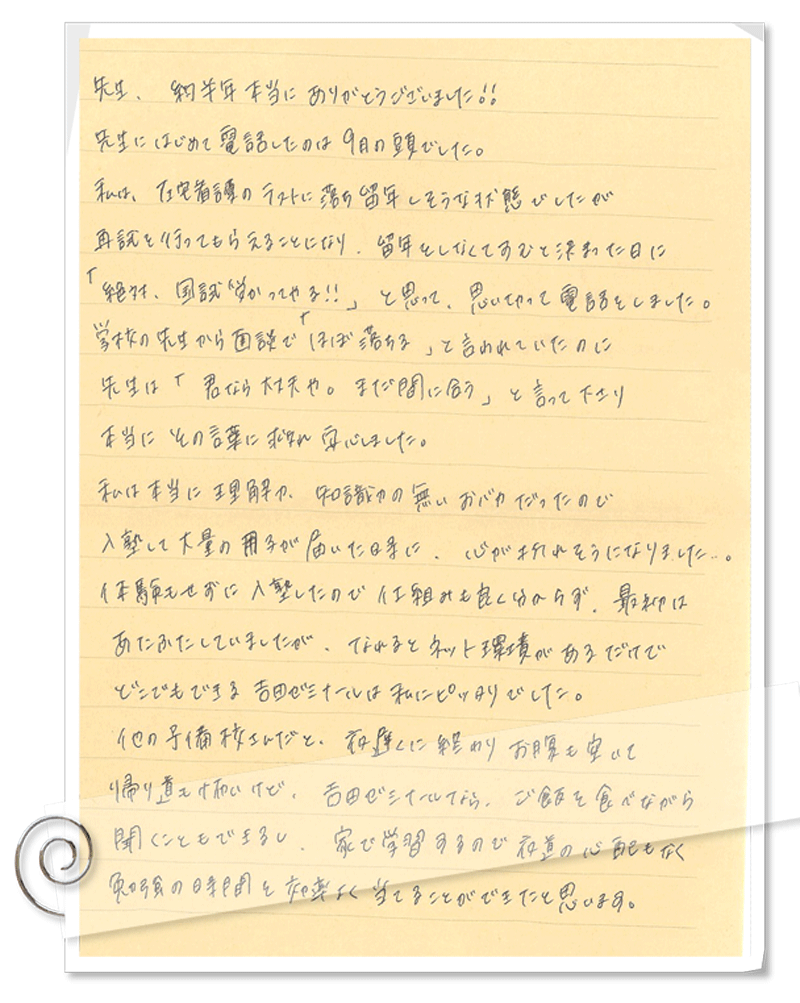 先生、約半年本当にありがとうございました!!
先生にはじめて電話したのは9月の頭でした。
私は、在宅看護のラストに落ち留年しそうな状態でしたが
再試を行ってもらえることになり、留年をしなくてすむと決まった日に
「絶対、国試受かってやる!!」と思って、思いきって電話をしました。
学校の先生から面談で「ほぼ落ちる」と言われていたのに
先生は「君なら大丈夫や。まだ間に合う」と言って下さり
本当にその言葉に救われ安心しました。
私は本当に理解力、知識力の無いおバカだったので
入塾して大量の冊子が届いた日等に、心が折れそうになりました…。
体験もせずに入塾したので仕組みも良く分からず、最初は
あたふたしていましたが、なれるとネット環境があるだけで
どこでもできる吉田ゼミナールは私にピッタリでした。
他の予備校さんだと、夜遅くに終わりお腹も空いて
帰り道も怖いけど、吉田ゼミナールなら、ご飯を食べながら
聞くこともできるし、家で学習するので夜道の心配もなく
勉強の時間を効率よく当てることができたと思います。